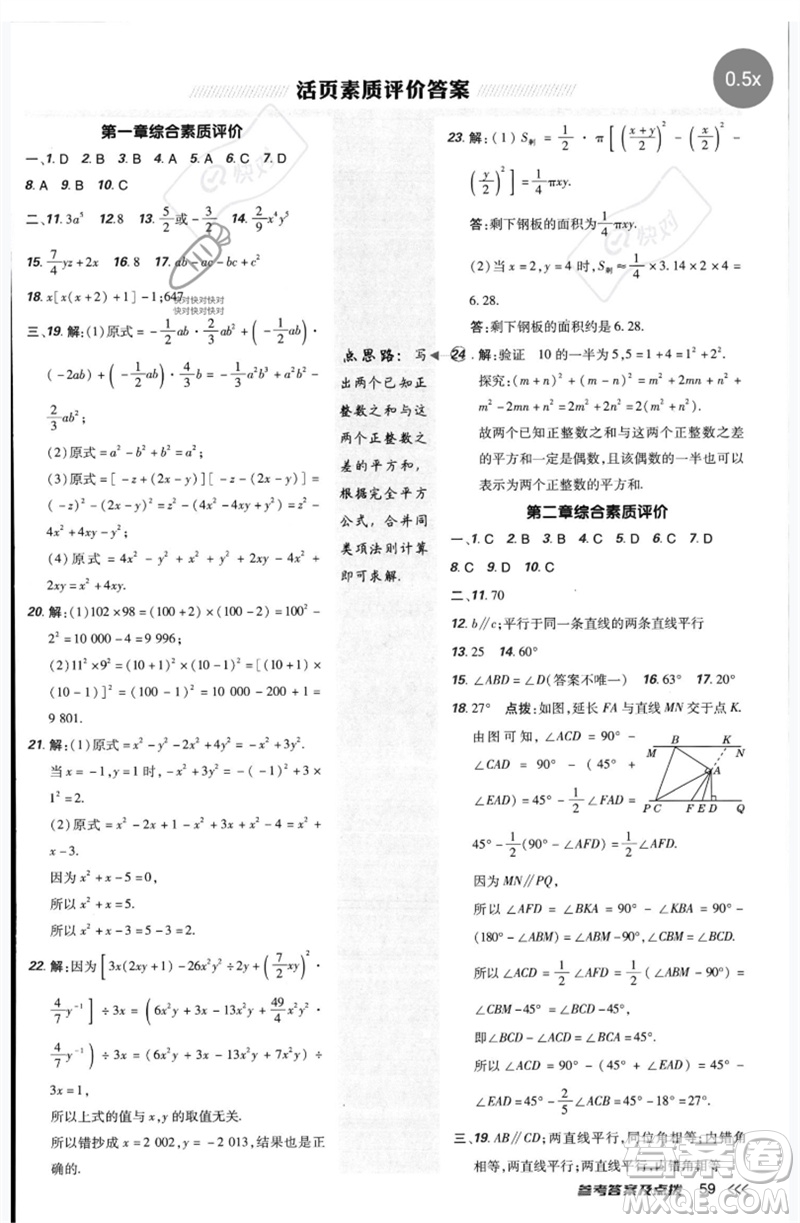 0.5x
活页素质评价答案
第一章综合素质评价
一、1. D 2. B 3. B 4. A 5. A 6. C 7. D
8. A 9. B 10. C
二、11. 3a⁵ 12. 8 13. 5/2或-3/2 14. 2/9x⁴y⁵
15. 7/4yz+2x 16. 8 17. ab-ac-bc+c²
18. x[x(x+2)+1]-1;647
快对快对快对
快对快对快对
三、19. 解:(1)原式=-1/2ab·2/3ab²+(-1/2ab)·
(-2ab)+(-1/2ab)·4/3b=-1/3a²b³+a²b²-
2/3ab²;
(2)原式=a²-b²+b²-2b=a²-2b;
(3)原式=[-z+(2x-y)][-z-(2x-y)]=
(-z)²-(2x-y)²=z²-(4x²-4xy+y²)=z²-
4x²+4xy-y²;
(4)原式=4x²-y²+2xy+y²-2xy-4x²+
2xy=2xy.
20. 解:(1)102×98=(100+2)×(100-2)=100²-
2²=10 000-4=9 996;
(2)11²×9²=(10+1)²×(10-1)²=[(10+1)×
(10-1)]²=(10²-1)²=10 000-200+1=
9 801.
21. 解:(1)原式=x²-y²-2x²+4y²=-x²+3y².
当x=-1,y=1时,-x²+3y²=-(-1)²+3×
1²=2.
(2)原式=x²-4x+4+x²-1-x²+5x-6=x²+
x-3.
因为x²+x-5=0,
所以x²+x=5.
所以x²+x-3=5-3=2.
22. 解:因为[3x(2xy+1)-26x²y²÷2y+(7/2xy)²·
4/7y⁻¹]÷3x=(6x²y+3x-13x²y+49/4x²y²·
4/7y⁻¹)÷3x=(6x²y+3x-13x²y+7x²y)÷
3x=1.
所以上式的值与x,y的取值无关.
所以错抄成x=2 002,y=-2 013,结果也是正
确的.
点思路:写
出两个已知正
整数之和与这
两个正整数之
差的平方和,
根据完全平方
公式,合并同
类项法则计算
即可求解.
23. 解:(1)S剩=1/2·π[((x+y)/2)²-(x/2)²-
(y/2)²]=1/4πxy.
答:剩下钢板的面积为1/4πxy.
(2)当x=2,y=4时,S剩≈1/4×3.14×2×4=
6.28.
答:剩下钢板的面积约是6.28.
24. 解:验证 10的一半为5,5=1+4=1²+2².
探究:(m+n)²+(m-n)²=m²+2mn+n²+
m²-2mn+n²=2m²+2n²=2(m²+n²).
故两个已知正整数之和与这两个正整数之差
的平方和一定是偶数,且该偶数的一半也可以
表示为两个正整数的平方和.
第二章综合素质评价
一、1. C 2. B 3. B 4. D 5. C 6. C 7. D
8. C 9. D 10. C
二、11. 70
12. b∥c;平行于同一条直线的两条直线平行
13. 25 14. 60°
15. ∠ABD=∠D(答案不唯一) 16. 63° 17. 20°
18. 27° 点拨:如图,延长FA与直线MN交于点K.
由图可知,∠ACD=90°-
∠CAD=90°-(45°+
∠EAD)=45°-1/2∠FAD=
M B K N
A
P C F E D Q
45°-1/2(90°-∠AFD)=1/2∠AFD.
因为MN∥PQ,
所以∠AFD=∠BKA=90°-∠KBA=90°-
(180°-∠ABM)=∠ABM-90°.
所以∠ACD=1/2∠AFD=1/2(∠ABM-90°)=
∠CBM-45°=∠BCD-45°,
即∠BCD-∠ACD=∠BCA=45°.
所以∠ACD=90°-(45°+∠EAD)=45°-
∠EAD=45°-2/5∠BCA=45°-18°=27°.
三、19. AB∥CD;两直线平行,同位角相等;内错角
相等,两直线平行;两直线平行,内错角相等
参考答案及点拨 59